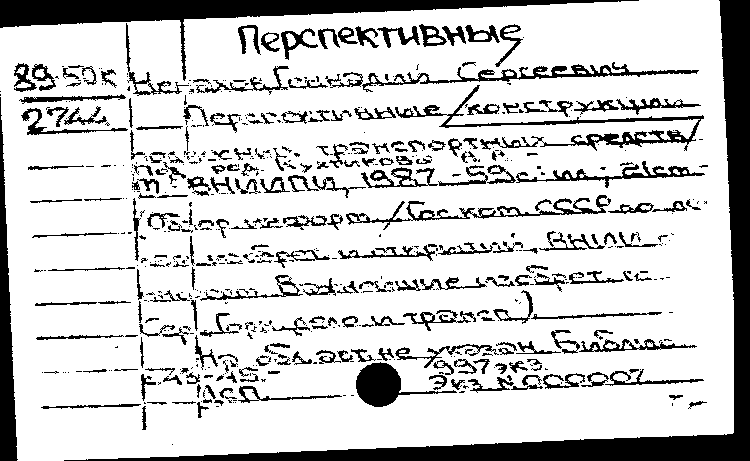 Перспективные
89-50к Геннадий Сергеевич
2744 Перспективные конструкции
транспортных средств/
Под ред. Кухтикова А.А. -
м: ВНИИПИ, 1987. -59с: ил; 21см -
(Обзор. информ. /Гос. ком. СССР по
изобрет. и открытий, ВНИИ
информ. Важнейшие изобрет.
Сер. Горн. дело и трансп.)
На обл. авт. не указан. Библиогр.
с.43-45.- 997 экз.
Экз N 000007